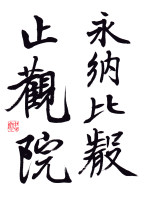 永納比叡
止觀院